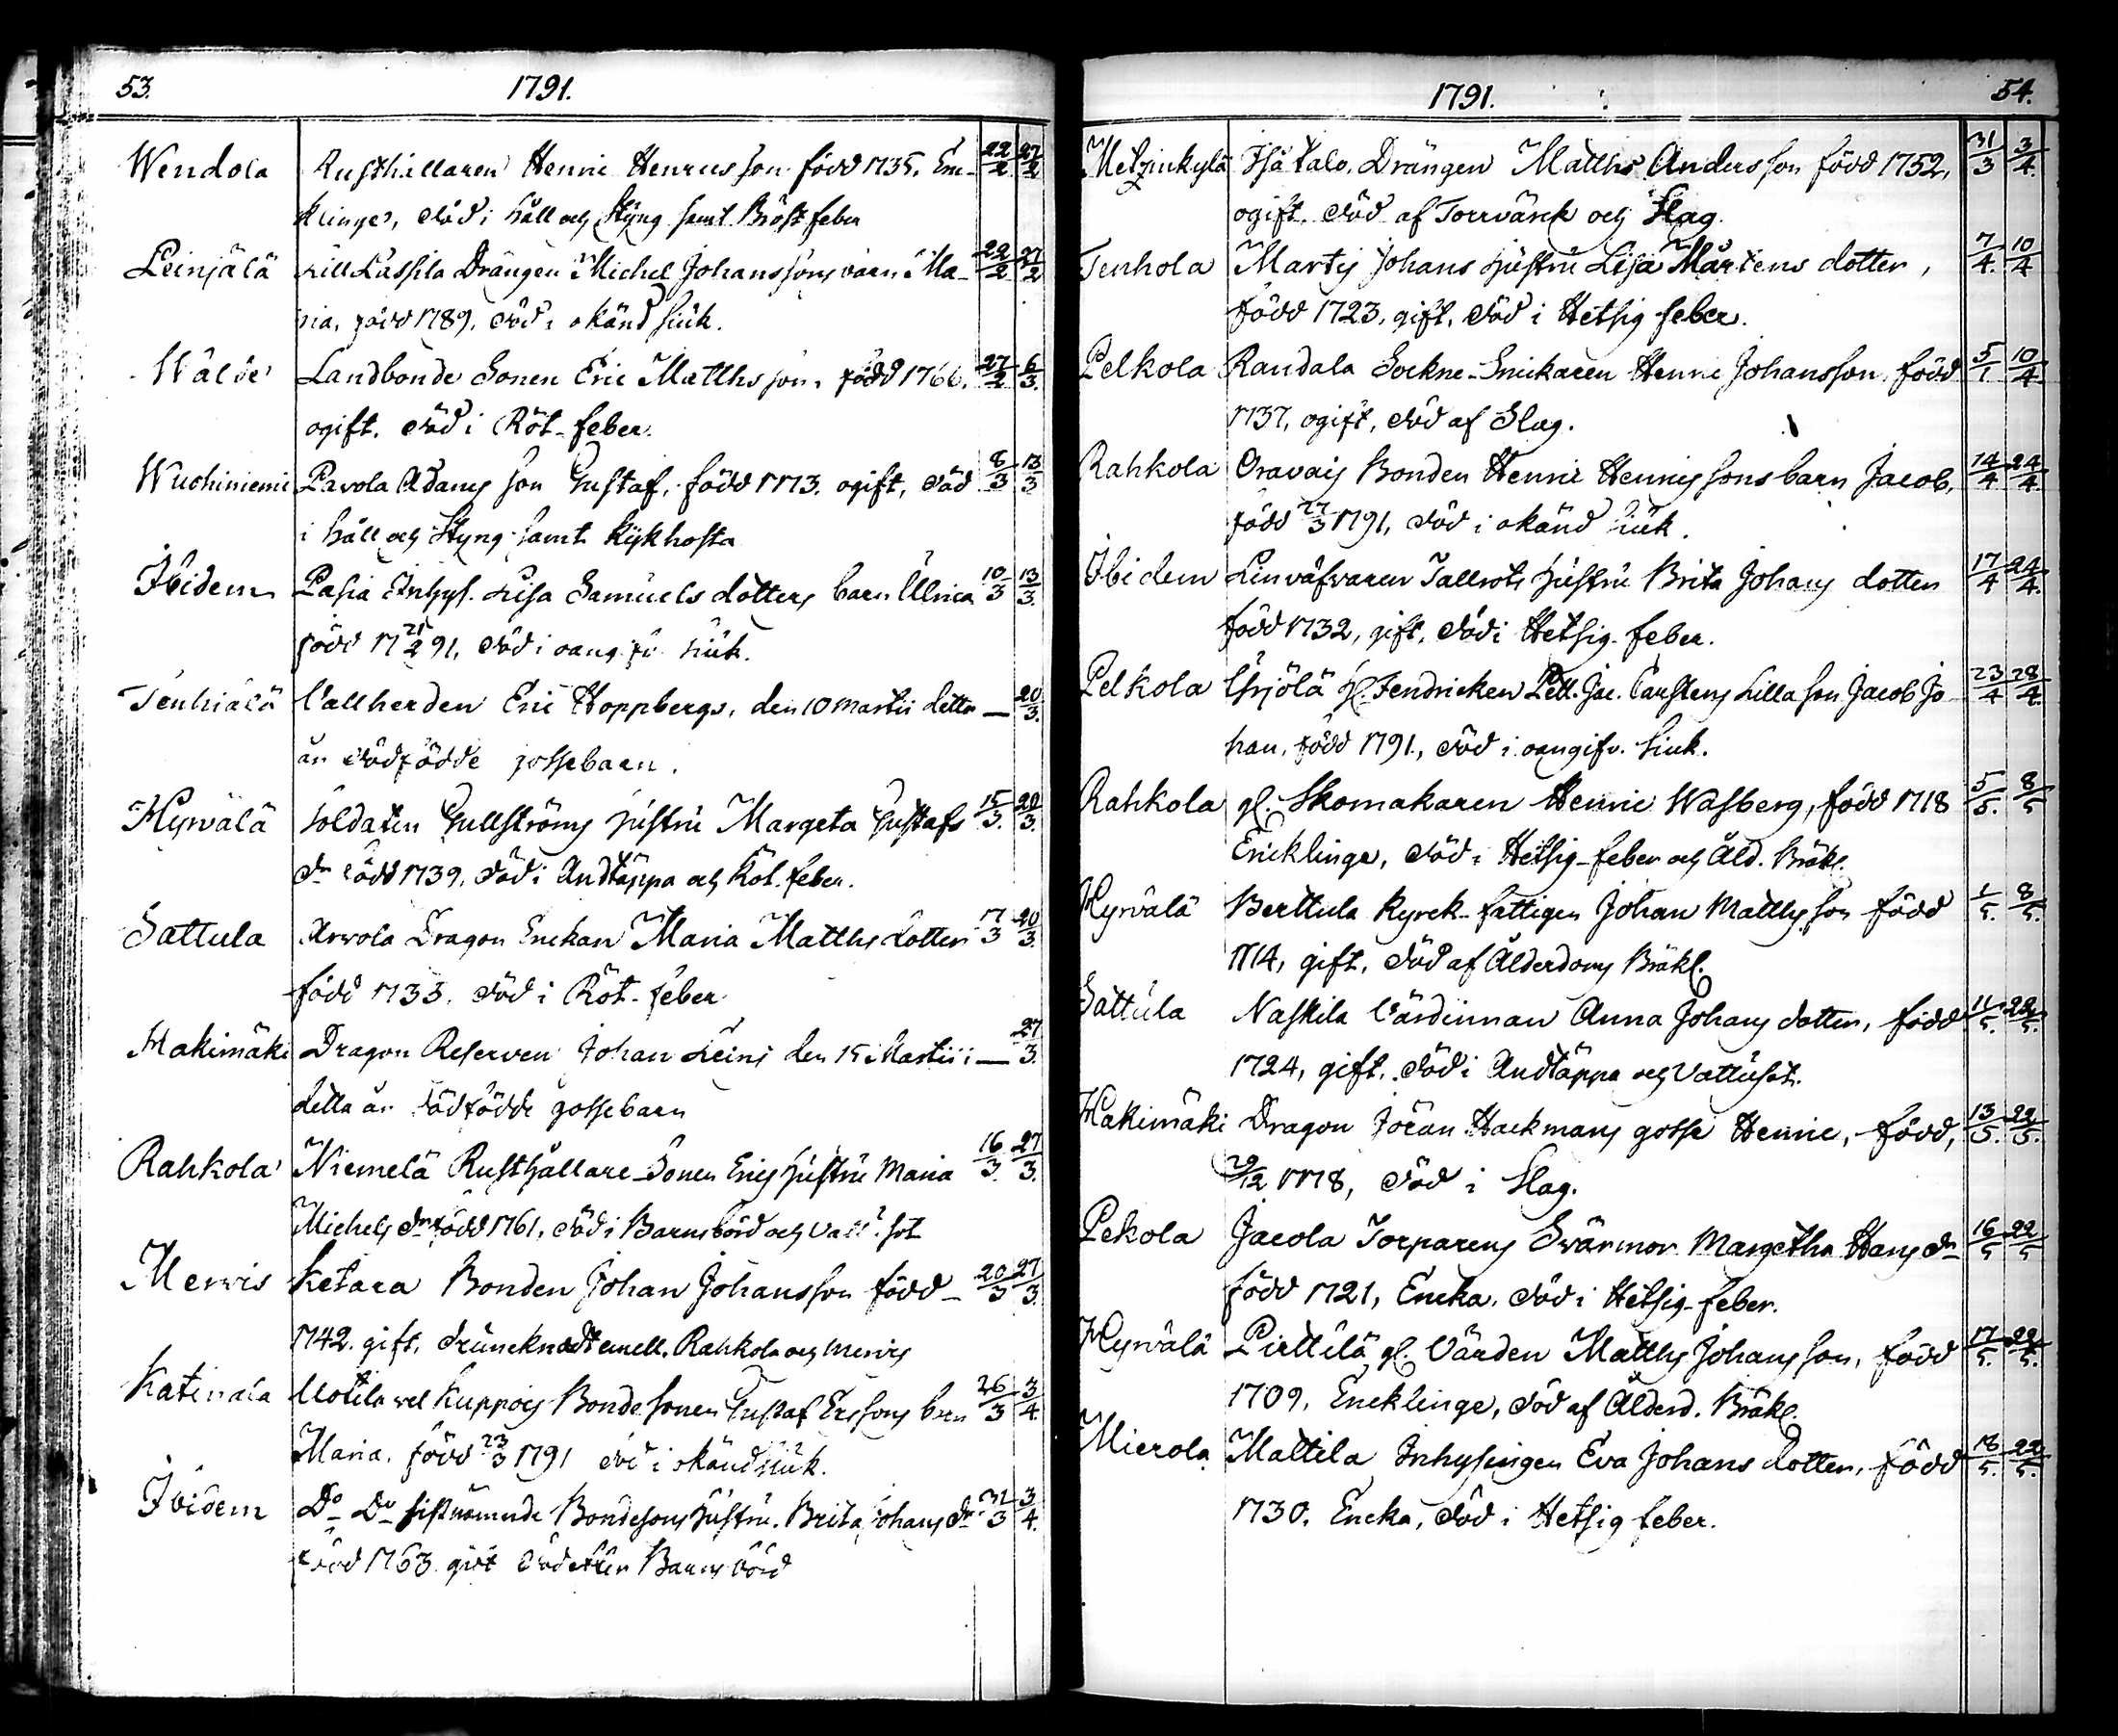 53. 1791.
Wendola Rusthållaren Henric Henricsson född 1735. En- 22/2 27/2
klinge, död i håll och styng samt Bröst feber
Leinjälä Lill Lassila Drängen Michel Johanssons barn Ma- 22/2 27/2
ria, född 1789. död i okänd siuk.
Wälde Landbonde Sonen Eric Matthsson, född 1766. 27/2 6/3.
ogift. död i Röt-feber.
Wuohiniemi Pavola Adams son Gustaf, född 1773. ogift, död 8/3 13/3
i håll och styng samt kykhosta
Ibidem Pasia Inhys. Lisa Samuels dotters barn Ulrica 10/3 13/3.
född 17 21/2 91, död i oangifv. siuk.
Tenhiälä Vallherden Eric Hoppbergs, den 10 Martii detta — 20/3.
år dödfödde gossebarn.
Hyrvälä Soldaten Gullströms hustru Margeta Gustafs 15/3. 20/3.
dr född 1739. död i Andtäppa och Röt. feber.
Sattula Arvola Dragon Enckan Maria Matths dotter 17/3 20/3.
född 1733. död i Röt-feber
Hakimäki Dragon Reserven Johan Leins den 15 Martii — 27/3.
detta år dödfödde gossebarn
Rahkola Niemelä Rusthållare-Sonen Erics hustru Maria 16/3. 27/3.
Michels dr född 1761. död i Barnsbörd och Vatt. sot
Merwis Ketara Bonden Johan Johansson född 20/3 27/3.
1742. gift. druncknadt emell. Rahkola och Merwis
Katinala Uotila vel Kuppois Bonde sonen Gustaf Erssons barn 26/3 3/4.
Maria. född 23/3 1791 död i okänd siuk.
Ibidem Do Do sistnämnde Bondesons hustru. Brita Johans dr 31/3 3/4.
född 1763. gift död efter Barns börd
1791. 54.
Metzinkylä Isä talo. Drängen Matths Andersson född 1752, 31/3 3/4.
ogift. död af Torrvärk och Slag.
Tenhola Martis Johans hustru Lisa Mårtens dotter, 7/4. 10/4
född 1723, gift. död i Hetsig feber.
Pelkola Randala Sockne-Snickaren Henric Johansson, född 5/1 10/4
1737, ogift, död af Slag.
Rahkola Oravais Bonden Henric Henricssons barn Jacob, 14/4 24/4.
född 27/3 1791, död i okänd siuk.
Ibidem Linväfvaren Tallrots hustru Brita Johans dotter 17/4 24/4.
född 1732, gift. död i Hetsig feber.
Pelkola Yrjölä H. Fendricken Jac. Carstens Lilla son Jacob Jo- 23/4 28/4.
han, född 1791., död i oangifv. siuk.
Rahkola gl. Skomakaren Henric Wasberg, född 1718 5/5. 8/5
Encklinge, död i Hetsig-feber och Åld. Bräkl.
Hyrvälä Berttula Kyrck-fattigen Johan Matthsson född 1/5. 8/5.
1714, gift, död af Ålderdoms Bräkl.
Sattula Naskila Värdinnan Anna Johans dotter, född 11/5. 22/5.
1724, gift. död i Andtäppa och Vattusot.
Hakimäki Dragon Jöran Hackmans gosse Henric, född, 13/5. 22/5.
29/12 1778, död i Slag.
Pekola Jacola Torparens Svärmor Margetha Hans dr 16/5 22/5
född 1721, Encka. död i Hetsig-feber.
Hyrvälä Pirttilä gl. Värden Matths Johansson, född 17/5. 22/5.
1709, Encklinge, död af Ålderd. Bräkl.
Mierola Mattila Inhysingen Eva Johans dotter, född 18/5. 22/5.
1730. Encka, död i Hetsig feber.